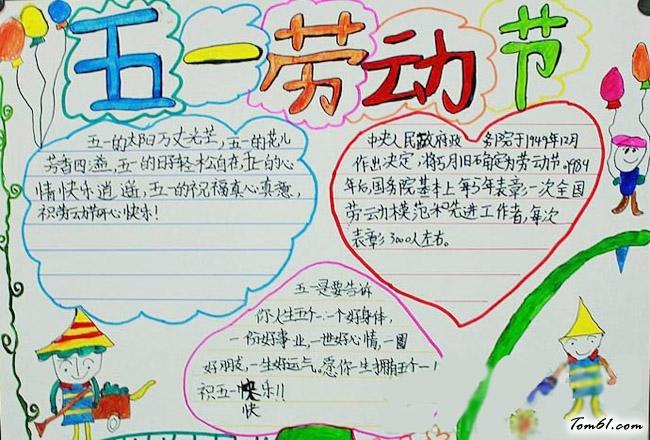 五一劳动节
五一的太阳万丈光芒,五一的花儿
芳香四溢,五一的日子轻松自在,五一的心
情快乐逍遥,五一的祝福真心真意,
祝劳动节开心快乐!
中央人民政府政务院于1949年12月
作出决定,将5月1日确定为劳动节。1989
年后,国务院基本上每5年表彰一次全国
劳动模范和先进工作者,每次
表彰3000人左右。
五一是要告诉
你人生五个一:一个好身体,
一份好事业,一世好心情,一圈
好朋友,一生好运气。愿你一生拥有五个一!
祝五一快乐!!
快
Tom61.com